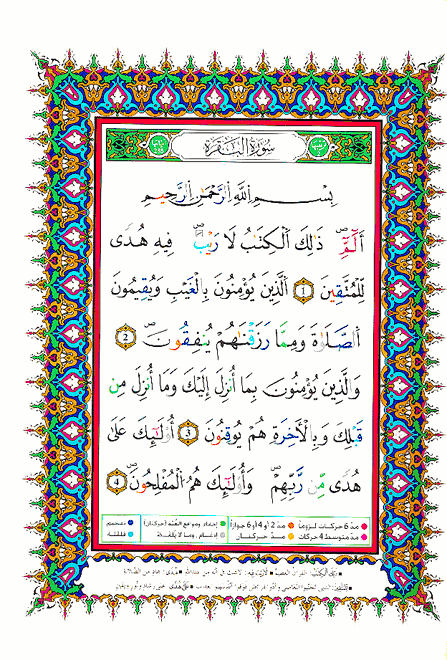 سُورَةُ الْبَقَرَةِ
بِسْمِ اللَّهِ الرَّحْمَٰنِ الرَّحِيمِ
أَلَمِّ ذَٰلِكَ الْكِتَٰبُ لَا رَيْبَ فِيهِ هُدًى
لِّلْمُتَّقِينَ 1 الَّذِينَ يُؤْمِنُونَ بِالْغَيْبِ وَيُقِيمُونَ
الصَّلَوٰةَ وَمِمَّا رَزَقْنَٰهُمْ يُنفِقُونَ 2
وَالَّذِينَ يُؤْمِنُونَ بِمَا أُنزِلَ إِلَيْكَ وَمَا أُنزِلَ مِن
قَبْلِكَ وَبِالْأَخِرَةِ هُمْ يُوقِنُونَ 3 أُوْلَٰٓئِكَ عَلَىٰ
هُدًى مِّن رَّبِّهِمْ وَأُوْلَٰٓئِكَ هُمُ الْمُفْلِحُونَ 4
مدّ 6 حركات لزوماً مدّ 2 أو 4 أو 6 جوازاً إخفاء، ومواقع الغنّة (حركتان) تفخيم
مدّ متوسط 4 حركات مدّ حركتان إدغام، وما لا يلفظ قلقلة